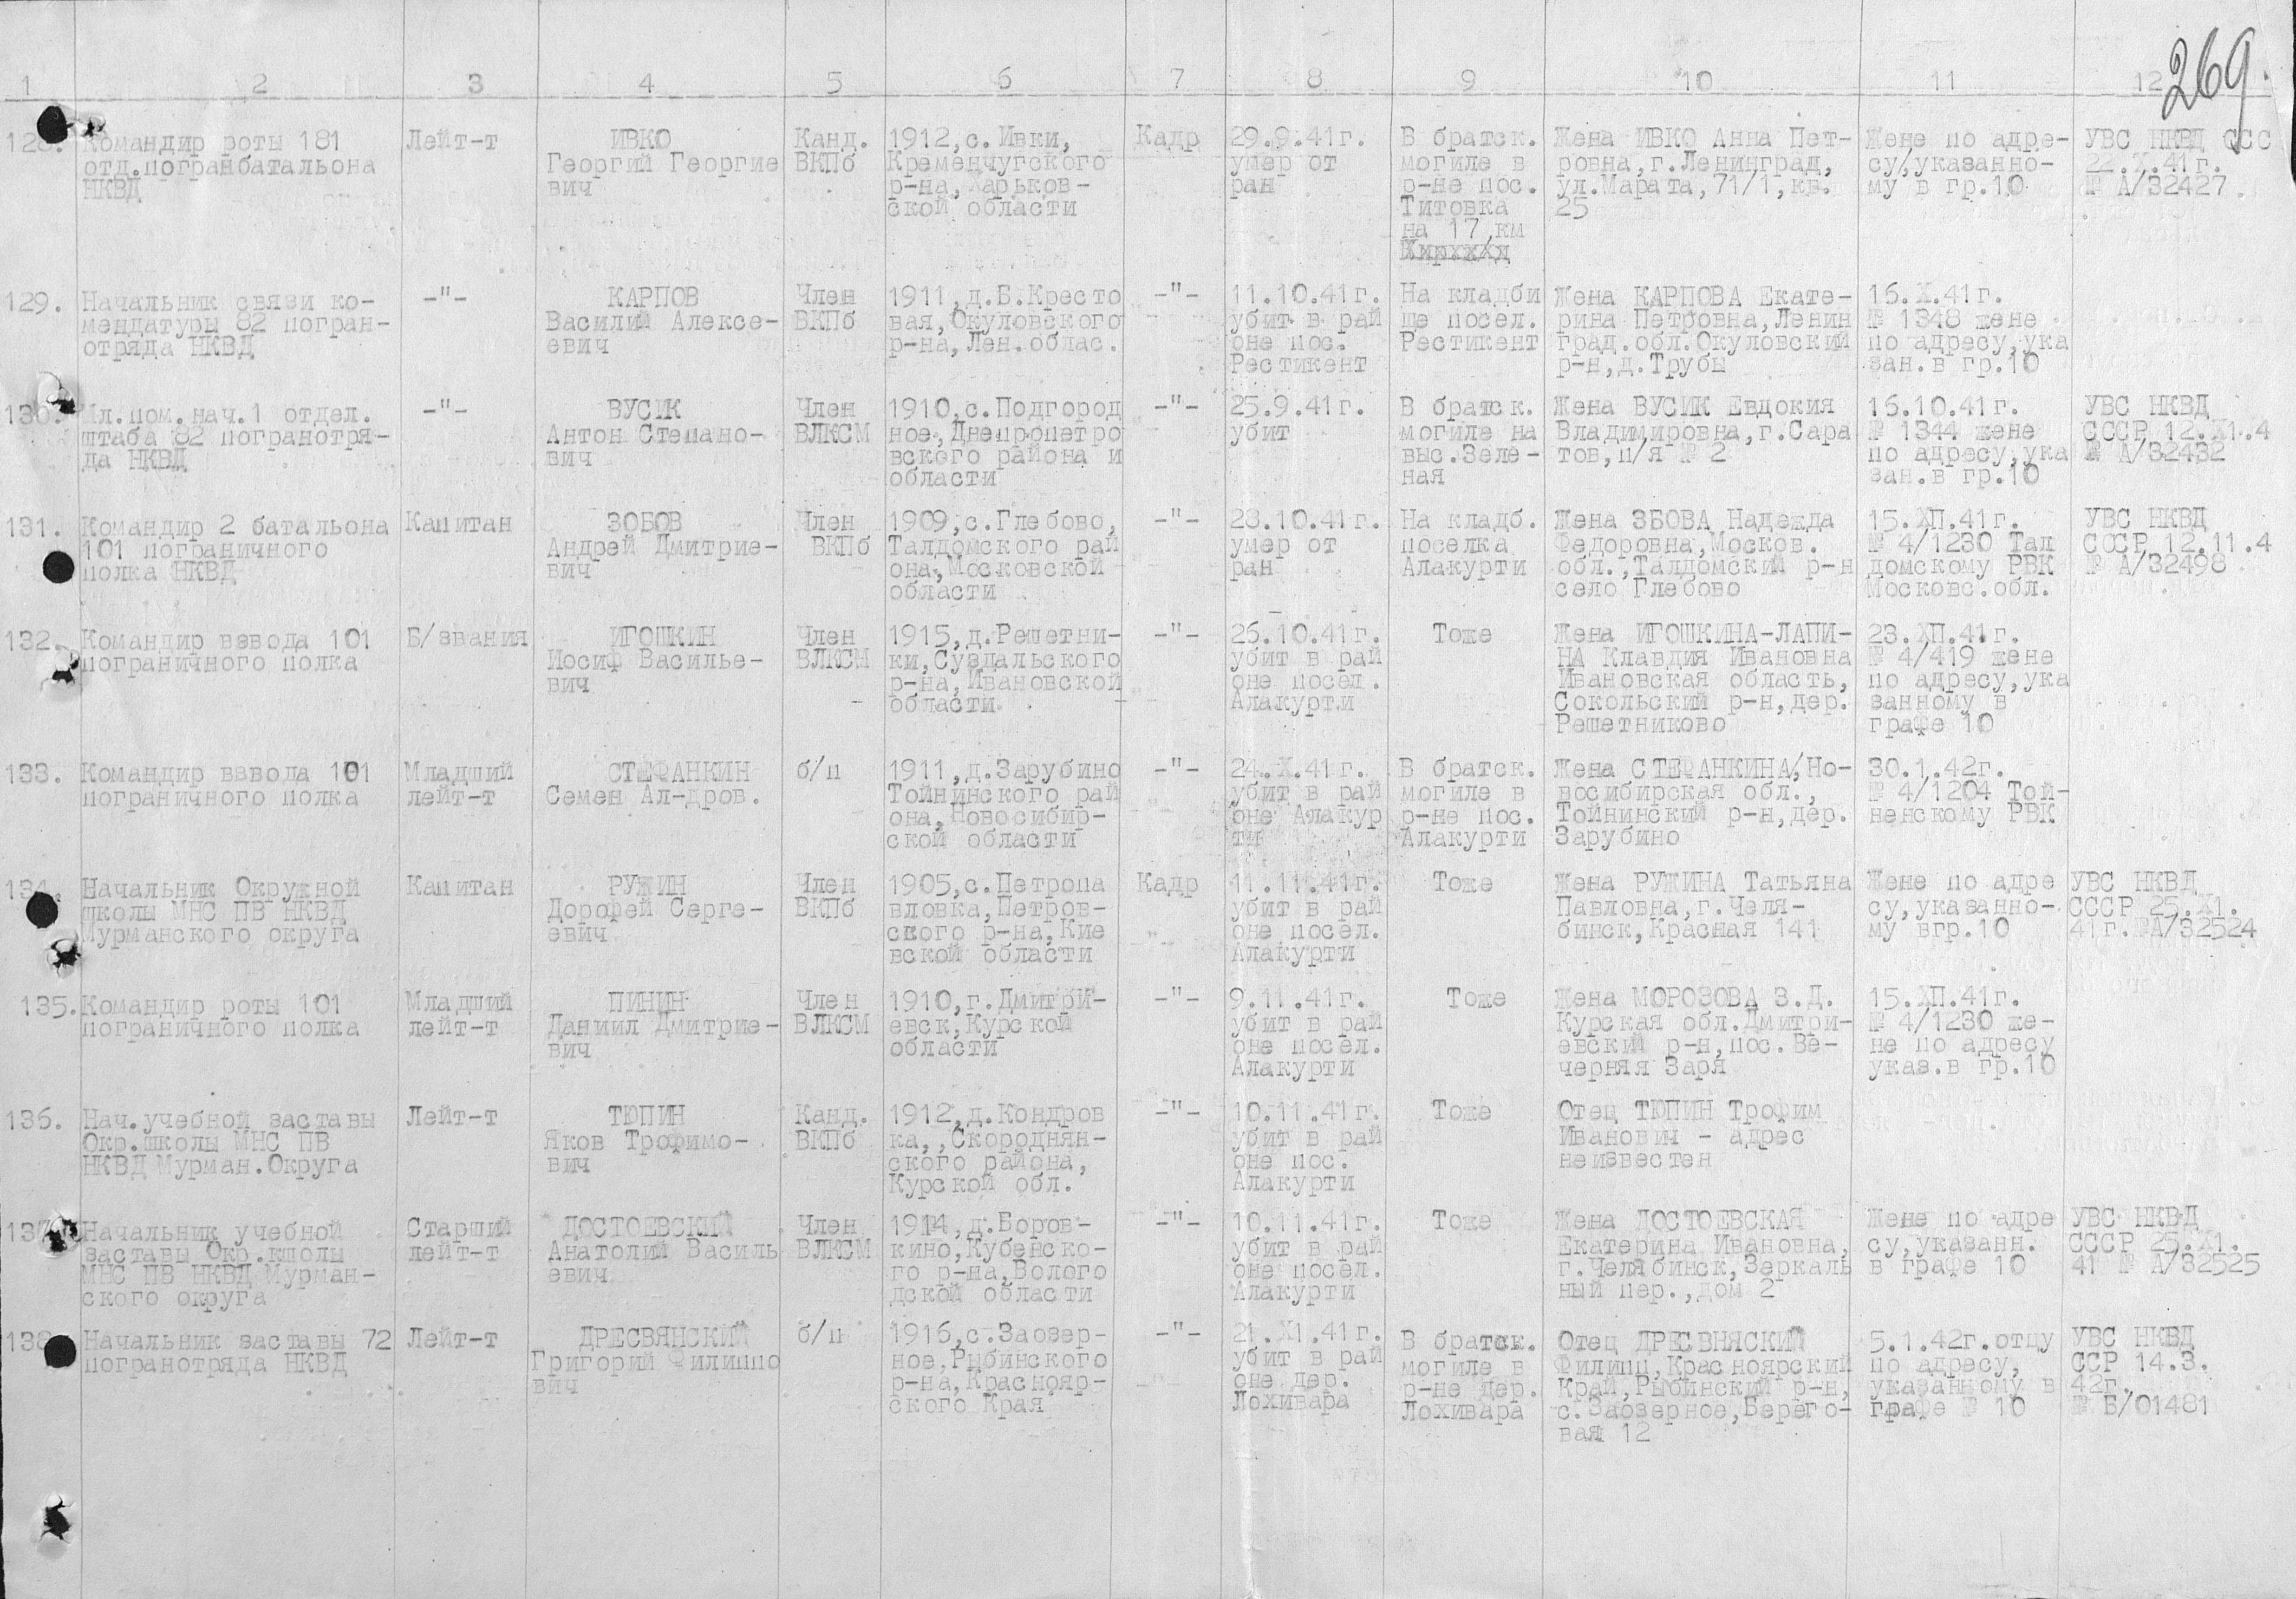 269.
1 2 3 4 5 6 7 8 9 10 11 12
128.
Командир роты 181
отд.погранбатальона
НКВД
Лейт-т
ИВКО
Георгий Георгие
вич
Канд.
ВКПб
1912,с. Ивки,
Кременчугского
р-на,Харьков-
ской области
Кадр
29.9.41г.
умер от
ран
В братск.
могиле в
р-не пос.
Титовка
на 17 км
Жена ИВКО Анна Пет-
ровна,г.Ленинград,
ул.Марата,71/1,кв.
25
Жене по адре-
су,указанно-
му в гр.10
УВС НКВД ССС
22.X.41г.
№ А/32427
129.
Начальник связи ко-
мендатуры 82 погран-
отряда НКВД
-"-
КАРПОВ
Василий Алексе-
евич
Член
ВКПб
1911,д.Б.Кресто
вая,Окуловского
р-на,Лен.облас.
-"-
11.10.41г.
убит в рай
оне пос.
Рестикент
На кладби
ще посел.
Рестикент
Жена КАРПОВА Екате-
рина Петровна,Ленин
град.обл.Окуловский
р-н,д.Трубы
16.X.41г.
№ 1348 жене
по адресу,ука
зан.в гр.10
130.
Мл.пом.нач.1 отдел.
штаба 82 погранотря-
да НКВД
-"-
ВУСИК
Антон Степано-
вич
Член
ВЛКСМ
1910,с.Подгород
ное,Днепропетро
вского района и
области
-"-
25.9.41г.
убит
В братск.
могиле на
выс.Зеле-
ная
Жена ВУСИК Евдокия
Владимировна,г.Сара
тов,п/я № 2
16.10.41г.
№ 1344 жене
по адресу,ука
зан.в гр.10
УВС НКВД
СССР 12.X1.4
№ А/32432
131.
Командир 2 батальона
101 пограничного
полка НКВД
Капитан
ЗОБОВ
Андрей Дмитрие-
вич
Член
ВКПб
1909,с.Глебово,
Талдомского рай
она,Московской
области
-"-
28.10.41г.
умер от
ран
На кладб.
поселка
Алакурти
Жена ЗБОВА Надежда
Федоровна,Москов.
обл.,Талдомский р-н
село Глебово
15.XП.41г.
№ 4/1230 Тал
домскому РВК
Московс.обл.
УВС НКВД
СССР 12.11.4
№ А/32498
132.
Командир взвода 101
пограничного полка
Б/звания
ИГОШКИН
Иосиф Василье-
вич
Член
ВЛКСМ
1915,д.Решетни-
ки,Суздальского
р-на,Ивановской
области.
-"-
26.10.41г.
убит в рай
оне посел.
Алакурти
Тоже
Жена ИГОШКИНА-ЛАПИ-
НА Клавдия Ивановна
Ивановская область,
Сокольский р-н,дер.
Решетниково
23.XП.41г.
№ 4/419 жене
по адресу,ука
занному в
графе 10
133.
Командир взвода 101
пограничного полка
Младший
лейт-т
СТЕФАНКИН
Семен Ал-дров.
б/п
1911,д.Зарубино
Тойнинского рай
она,Новосибир-
ской области
-"-
24.X.41г.
убит в рай
оне Алакур
ти
В братск.
могиле в
р-не пос.
Алакурти
Жена СТЕФАНКИНА,Но-
восибирская обл.,
Тойнинский р-н,дер.
Зарубино
30.1.42г.
№ 4/1204 Той-
ненскому РВК
134.
Начальник Окружной
школы МНС ПВ НКВД
Мурманского округа
Капитан
РУЖИН
Дорофей Серге-
евич
Член
ВКПб
1905,с.Петропа
вловка,Петров-
ского р-на,Кие
вской области
Кадр
11.11.41г.
убит в рай
оне посел.
Алакурти
Тоже
Жена РУЖИНА Татьяна
Павловна,г.Челя-
бинск,Красная 141
Жене по адре
су,указанно-
му вгр.10
УВС НКВД
СССР 25.X1.
41г.№А/32524
135.
Командир роты 101
пограничного полка
Младший
лейт-т
ПИНИН
Даниил Дмитрие-
вич
Член
ВЛКСМ
1910,г.Дмитрий-
евск,Курской
области
-"-
9.11.41г.
убит в рай
оне посел.
Алакурти
Тоже
Жена МОРОЗОВА З.Д.
Курская обл.Дмитри-
евский р-н,пос.Ве-
черняя Заря
15.XП.41г.
№ 4/1230 же-
не по адресу
указ.в гр.10
136.
Нач.учебной заставы
Окр.школы МНС ПВ
НКВД Мурман.Округа
Лейт-т
ТЮПИН
Яков Трофимо-
вич
Канд.
ВКПб
1912,д.Кондров
ка,,Скороднян-
ского района,
Курской обл.
-"-
10.11.41г.
убит в рай
оне пос.
Алакурти
Тоже
Отец ТЮПИН Трофим
Иванович - адрес
неизвестен
137.
Начальник учебной
заставы Окр.кшолы
МНС ПВ НКВД Мурман-
ского округа
Старший
лейт-т
ДОСТОЕВСКИЙ
Анатолий Василь
евич
Член
ВЛКСМ
1914,д.Боров-
кино,Кубенско-
го р-на,Волого
дской области
-"-
10.11.41г.
убит в рай
оне посел.
Алакурти
Тоже
Жена ДОСТОЕВСКАЯ
Екатерина Ивановна,
г.Челябинск,Зеркаль
ный пер.,дом 2
Жене по адре
су,указанн.
в графе 10
УВС НКВД
СССР 25.X1.
41 № А/32525
138
Начальник заставы 72
погранотряда НКВД
Лейт-т
ДРЕСВЯНСКИЙ
Григорий Филиппо
вич
б/п
1916,с.Заозер-
ное,Рыбинского
р-на,Краснояр-
ского Края
-"-
21.X1.41г.
убит в рай
оне дер.
Лохивара
В братск.
могиле в
р-не дер.
Лохивара
Отец ДРЕСВНЯСКИЙ
Филипп,Красноярский
Край,Рыбинский р-н,
с.Заозерное,Берего-
вая 12
5.1.42г.отцу
по адресу,
указанному в
графе № 10
УВС НКВД
ССР 14.3.
42г.
№ Б/01481